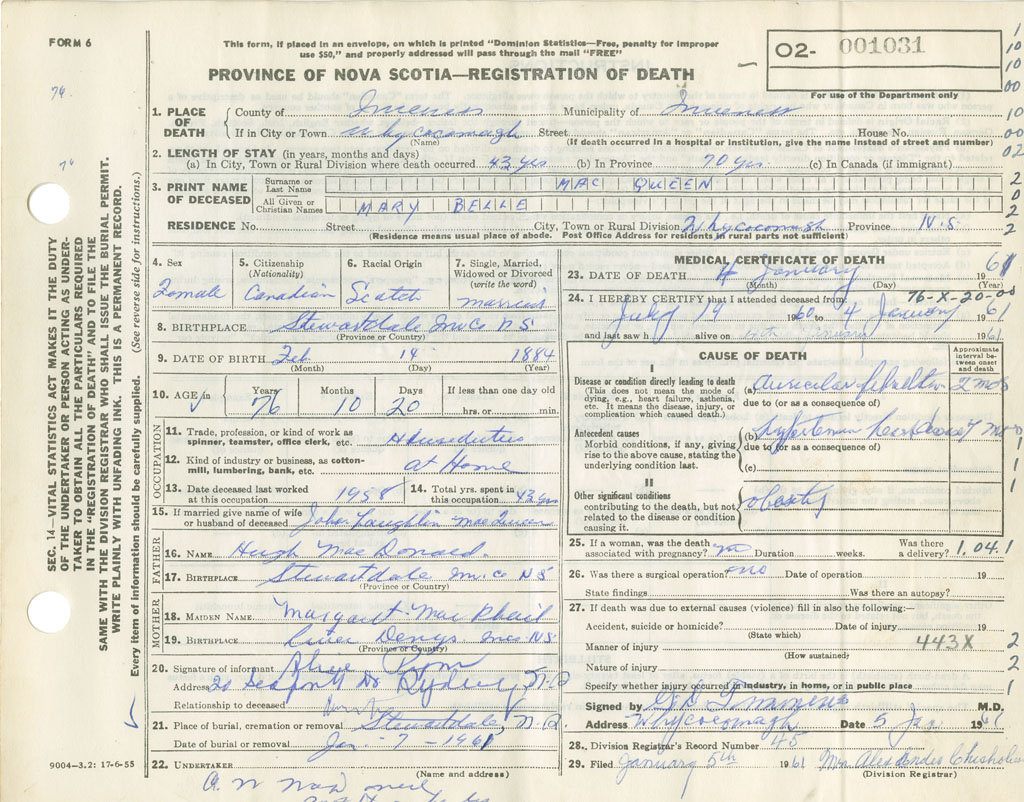 FORM 6
This form, if placed in an envelope, on which is printed "Dominion Statistics—Free, penalty for improper
use $50," and properly addressed will pass through the mail "FREE"
O2- 001031
PROVINCE OF NOVA SCOTIA—REGISTRATION OF DEATH
For use of the Department only
1. PLACE OF DEATH
County of Inverness Municipality of Inverness
If in City or Town Whycocomagh Street House No.
(Name) (If death occurred in a hospital or institution, give the name instead of street and number)
2. LENGTH OF STAY (in years, months and days)
(a) In City, Town or Rural Division where death occurred 43 yrs (b) In Province 70 yrs (c) In Canada (if immigrant)
3. PRINT NAME OF DECEASED
Surname or Last Name MAC QUEEN
All Given or Christian Names MARY BELLE
RESIDENCE No. Street City, Town or Rural Division Whycocomagh Province N.S
(Residence means usual place of abode. Post Office Address for residents in rural parts not sufficient)
4. Sex
Female
5. Citizenship
(Nationality)
Canadian
6. Racial Origin
Scotch
7. Single, Married,
Widowed or Divorced
(write the word)
married
8. BIRTHPLACE Stewartdale Inv Co N S
(Province or Country)
9. DATE OF BIRTH Feb 14 1884
(Month) (Day) (Year)
10. AGE in Years Months Days If less than one day old
76 10 20 hrs. or min.
OCCUPATION
11. Trade, profession, or kind of work as
spinner, teamster, office clerk, etc. Houseduties
12. Kind of industry or business, as cotton-
mill, lumbering, bank, etc. at Home
13. Date deceased last worked
at this occupation 1958
14. Total yrs. spent in
this occupation 43 yrs
15. If married give name of wife
or husband of deceased John Laughlin MacQueen
FATHER
16. NAME Hugh MacDonald.
17. BIRTHPLACE Stewartdale In. Co N S
(Province or Country)
MOTHER
18. MAIDEN NAME Margaret MacPhail
19. BIRTHPLACE Denys Inv N S
(Province or Country)
20. Signature of informant Alice
Address 20 Dr Sydney N.S
Relationship to deceased
21. Place of burial, cremation or removal Stewartdale, N.S.
Date of burial or removal Jan. 7 - 1961
22. UNDERTAKER
(Name and address)
MEDICAL CERTIFICATE OF DEATH
23. DATE OF DEATH 4 January 1961
(Month) (Day) (Year)
76-X-20-00
24. I HEREBY CERTIFY that I attended deceased from:
July 19 1960 to 4 January 1961
and last saw h alive on January 1961
CAUSE OF DEATH
Approximate interval between onset and death
I
Disease or condition directly leading to death
(This does not mean the mode of
dying, e.g., heart failure, asthenia,
etc. It means the disease, injury, or
complication which caused death.)
(a) auricular fibrillation 2 mos
due to (or as a consequence of)
Antecedent causes
Morbid conditions, if any, giving
rise to the above cause, stating the
underlying condition last.
(b) hypertensive heart disease 7 mos
due to (or as a consequence of)
(c)
II
Other significant conditions
contributing to the death, but not
related to the disease or condition
causing it.
obesity
25. If a woman, was the death
associated with pregnancy? no Duration weeks. Was there
a delivery? 1.04.1
26. Was there a surgical operation? no Date of operation 19
State findings Was there an autopsy?
27. If death was due to external causes (violence) fill in also the following:—
Accident, suicide or homicide? Date of injury 19
(State which)
Manner of injury 443X
(How sustained)
Nature of injury
Specify whether injury occurred in industry, in home, or in public place
Signed by M.D.
Address Whycocomagh Date 5 Jan 1961
28. Division Registrar's Record Number 45
29. Filed January 5th 1961 Mrs Alex Chisholm
(Division Registrar)
SEC. 14—VITAL STATISTICS ACT MAKES IT THE DUTY
OF THE UNDERTAKER OR PERSON ACTING AS UNDER-
TAKER TO OBTAIN ALL THE PARTICULARS REQUIRED
IN THE "REGISTRATION OF DEATH" AND TO FILE THE
SAME WITH THE DIVISION REGISTRAR WHO SHALL ISSUE THE BURIAL PERMIT.
WRITE PLAINLY WITH UNFADING INK. THIS IS A PERMANENT RECORD.
Every item of information should be carefully supplied. (See reverse side for instructions.)
9004—3.2: 17-6-55